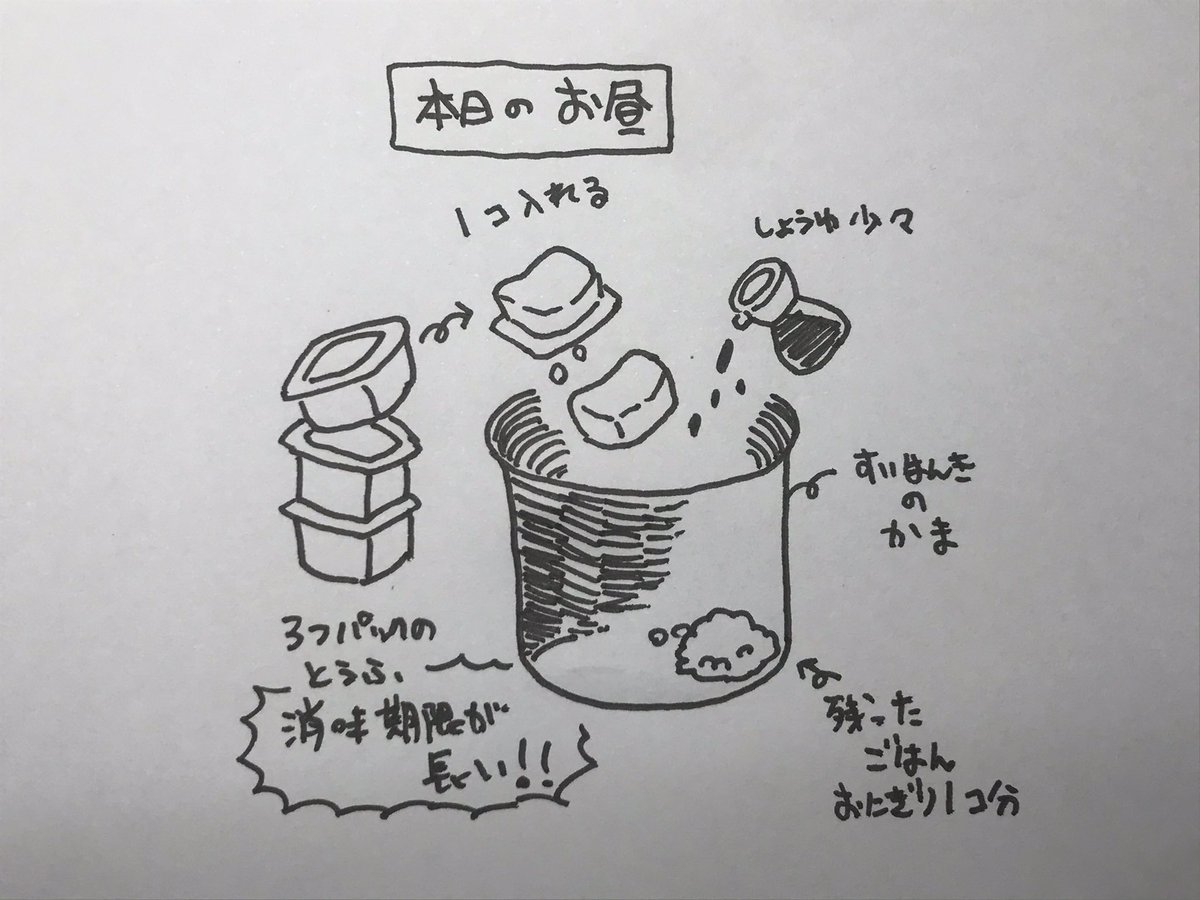 本日のお昼
1コ入れる
しょうゆ少々
すいはんき
の
かま
3つパックの
とうふ、
消味期限が
長い!!
残った
ごはん
おにぎり1コ分